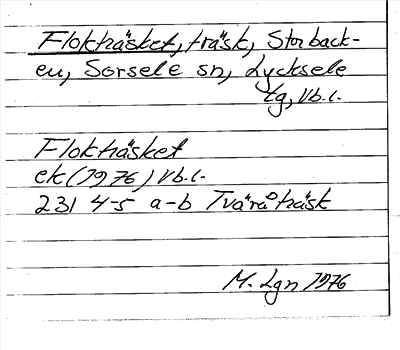 Flokträsket, träsk, Storback-
en, Sorsele sn, Lycksele
tg, Vb.l.
Flokträsket
ek (1976) Vb.l.
231 4-5 a-b Tväråträsk
M. Lgn 1976